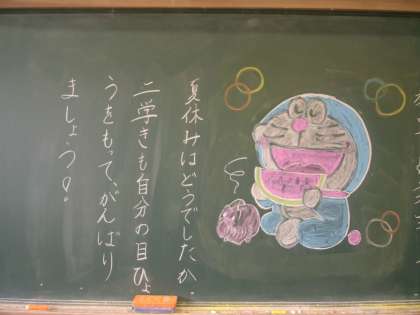 夏休みはどうでしたか。
二学きも自分の目ひょ
うをもって、がんばり
ましょう!